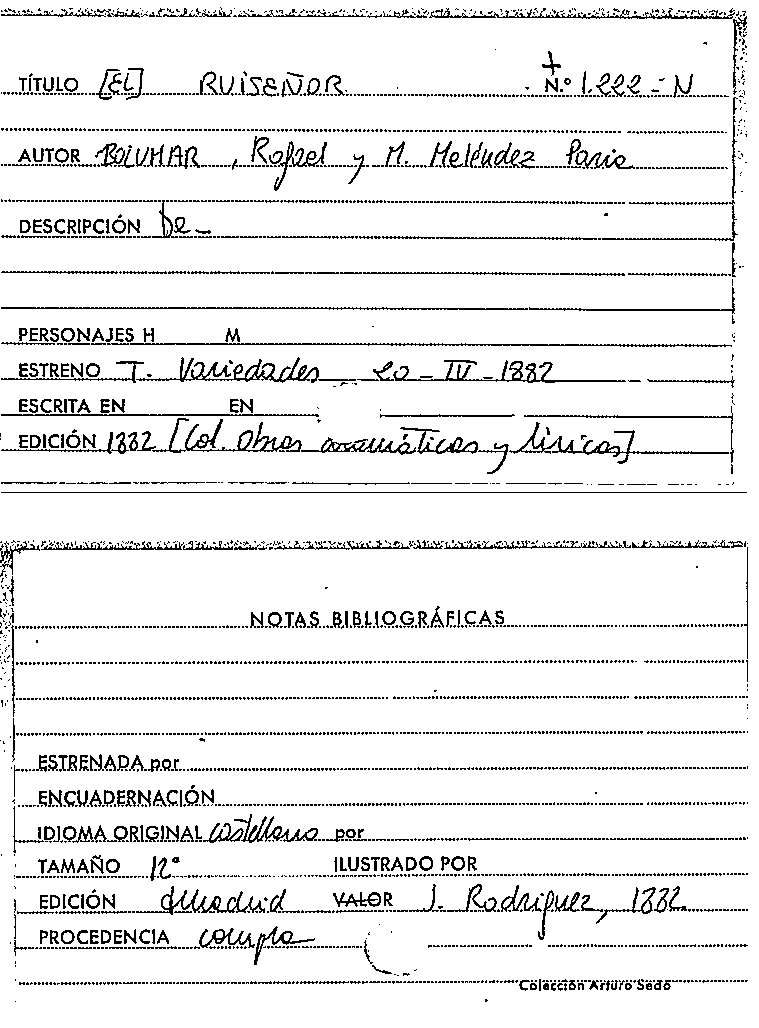 TÍTULO [EL] RUISEÑOR + N.º 1.222-N
AUTOR BOLUMAR, Rafael y M. Meléndez Paris
DESCRIPCIÓN De_
PERSONAJES H M
ESTRENO T. Variedades 20-IV-1882
ESCRITA EN EN
EDICIÓN 1882 [Col. Obras dramáticas y líricas]
NOTAS BIBLIOGRÁFICAS
ESTRENADA por
ENCUADERNACIÓN
IDIOMA ORIGINAL castellano por
TAMAÑO 12º ILUSTRADO POR
EDICIÓN Madrid VALOR J. Rodríguez, 1882
PROCEDENCIA compra
Colección Arturo Sedó